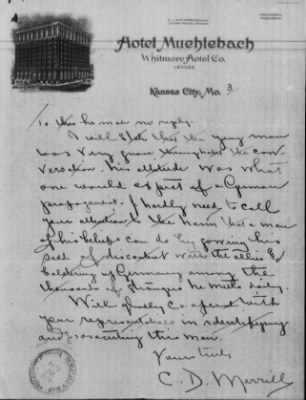 Hotel Muehlebach
Whitmore Hotel Co.
Kansas City, Mo. 3
To this he made no reply.
I will state that the young man
was very quiet throughout the con
versation. His attitude was what
one would expect of a German
propagandist. I hardly need to call
your attention to the harm that a man
of his beliefs can do by sowing his
seed of discontent with the allies &
belittling of Germany among the
thousands of strangers he meets daily.
Will gladly co operate with
your representatives in identifying
and prosecuting this man.
Yours truly
C. D. Merrill